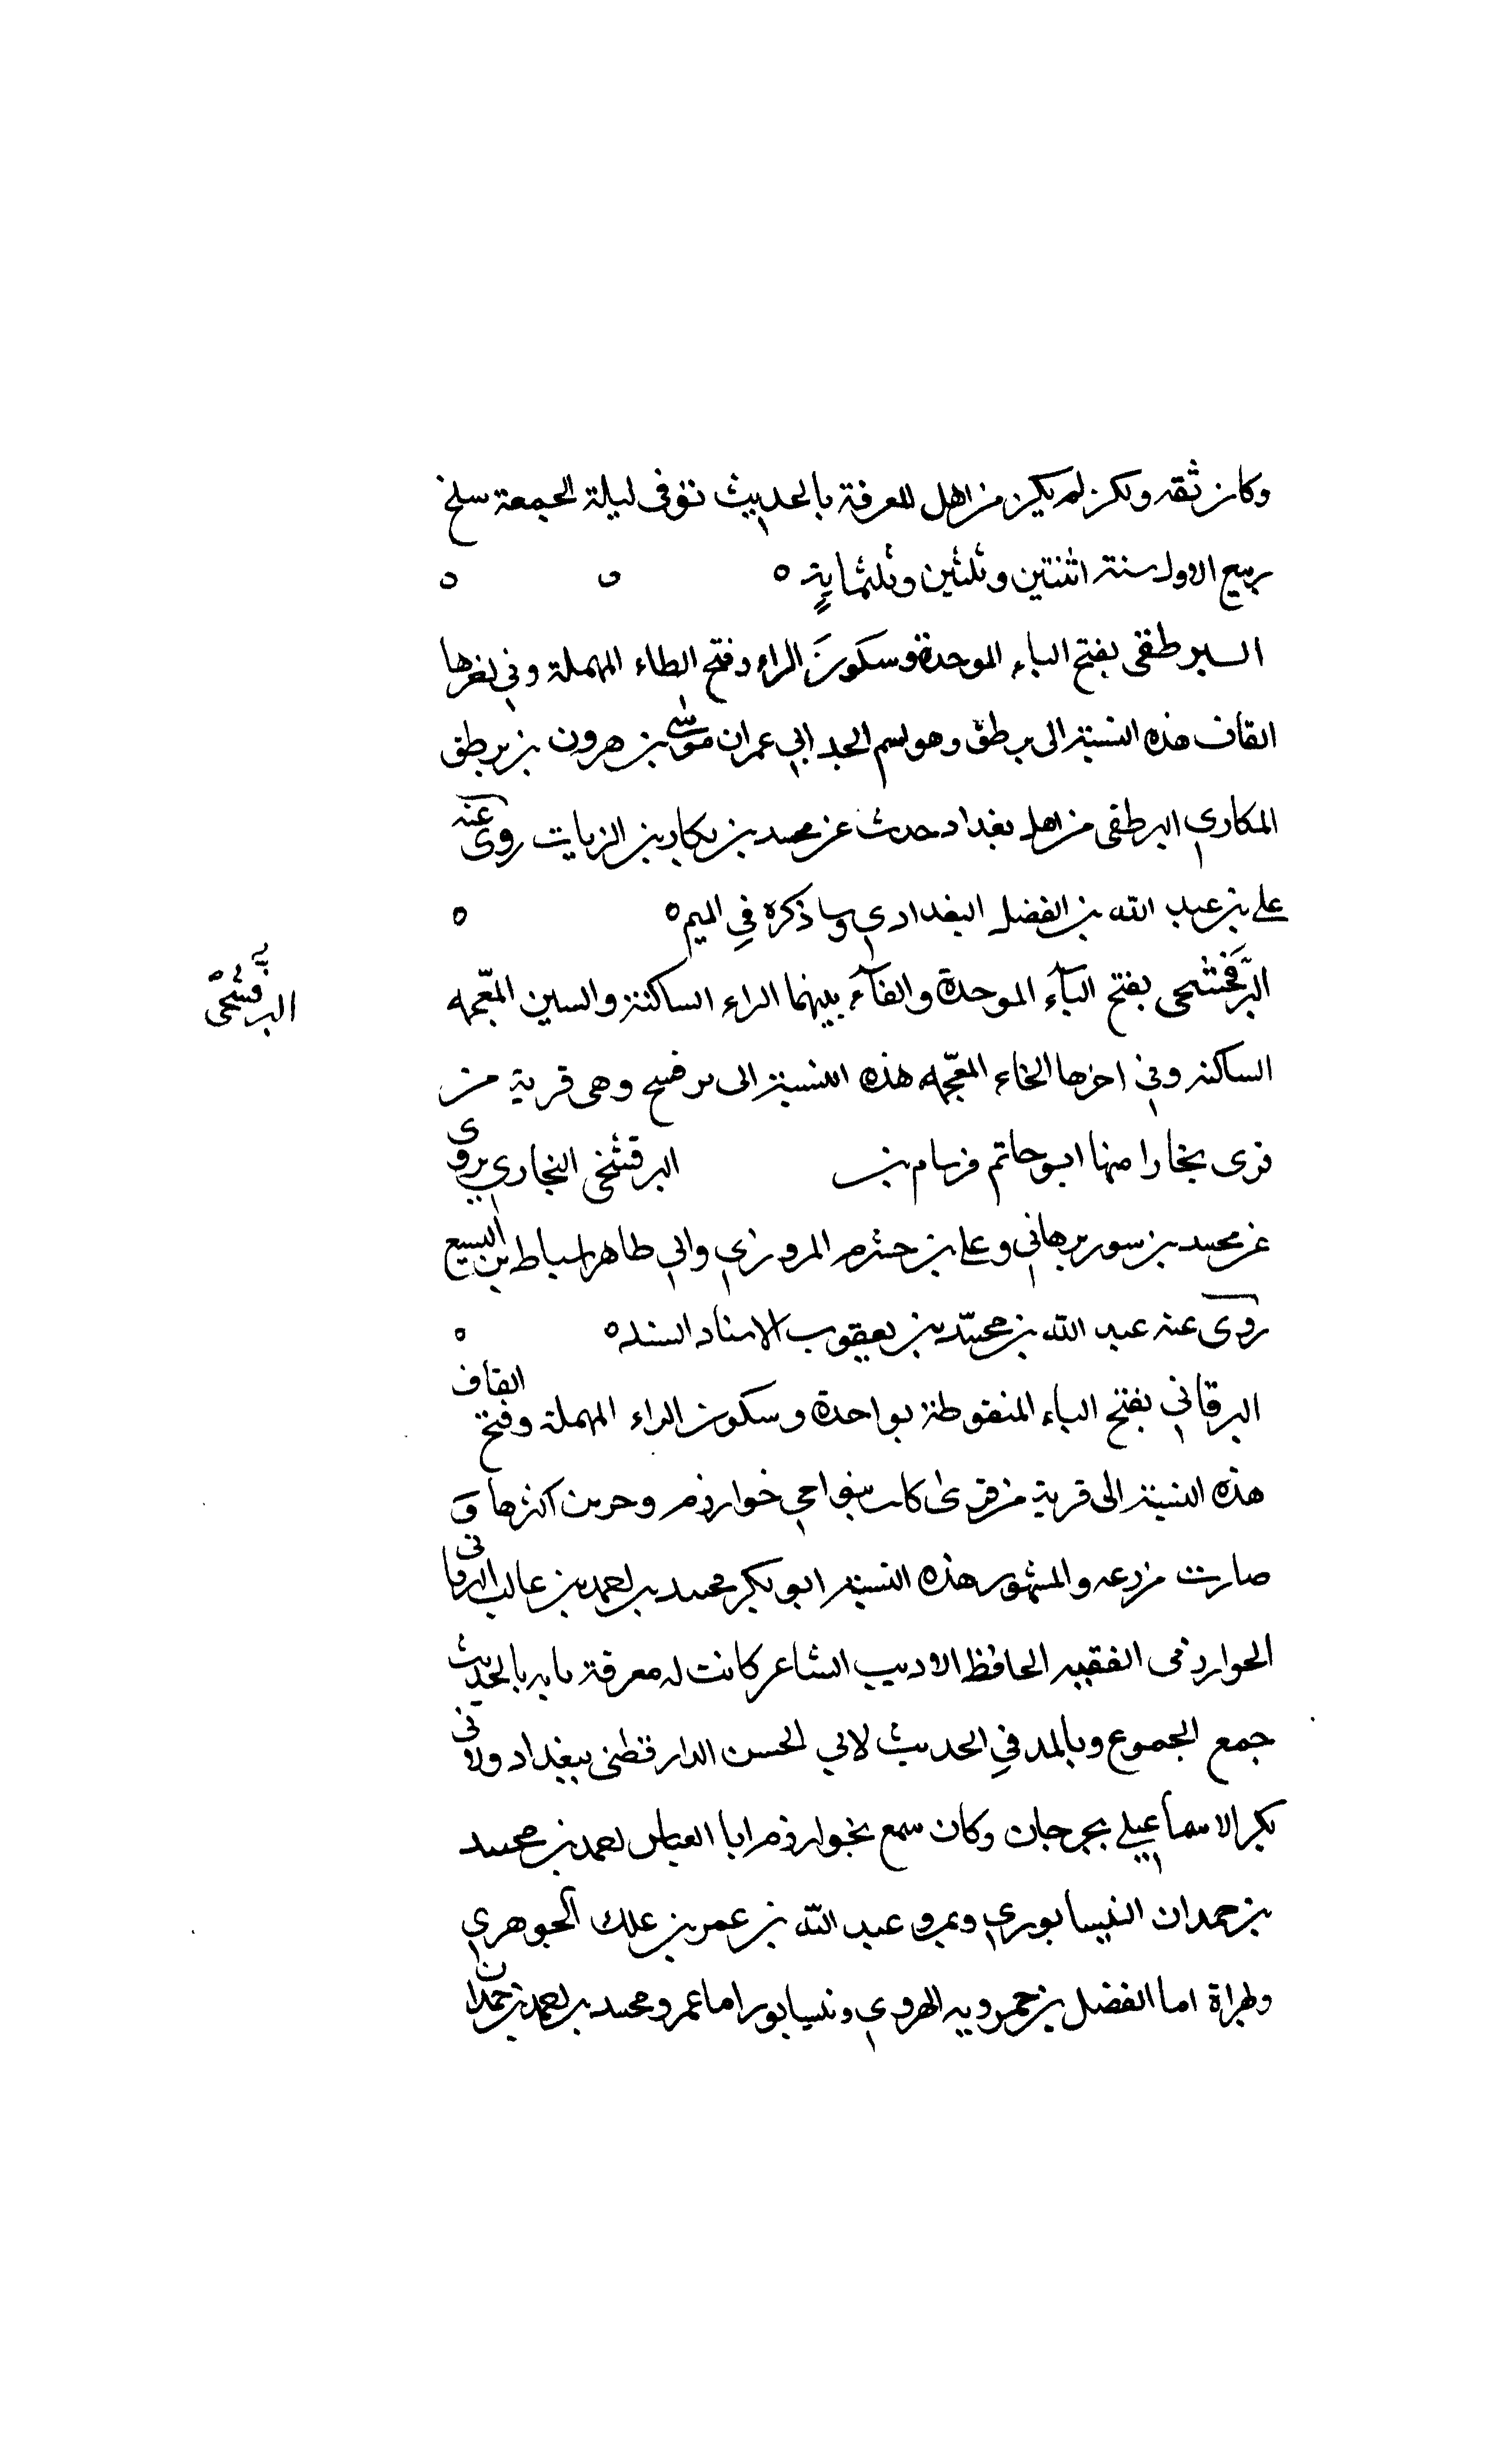 وكان ثقه ولكن لم يكن من اهل المعرفة بالحديث توفى ليلة الجمعة سلخ
ربيع الاول سنة اثنتين وثلثين وثلثماية ه ه ه
البرطقى بفتح الباء الموحدة وسكون الراء وفتح الطاء المهملة وفي اخرها
القاف هذه النسبة الى برطق وهو اسم الجد ابي عمران موسى بن هرون بن برطق
المكاري البرطقى من اهل بغداد حدث عن محمد بن بكار بن الزيات روى عنه
على بن عبد الله بن الفضل البغدادي وساذكره في الميم ه ه
البرفشخى بفتح الباء الموحدة والفاء بينهما الراء الساكنة والسين المعجمه
البرفشخى
الساكنه وفي اخرها الخاء المعجمه هذه النسبة الى برفسح وهى قرية من
قرى بخارا منها ابو حاتم بن البرفشخى البخاري يروى
عن محمد بن وعلى بن خشرم المروزي وابي طاهر اسباط بن اليسع
روى عنه عبد الله بن محمد بن يعقوب الاستاد السند ه ه
البرقاني بفتح الباء المنقوطة بواحدة وسكون الراء المهملة وفتح القاف
هذه النسبة الى قرية من قرى كاث بنواحي خوارزم وخربت اكثرها و
صارت مزرعه والمشهور هذه النسبه ابو بكر محمد بن احمد بن غالب البرقانى
الخوارزمى الفقيه الحافظ الاديب الشاعر كانت له معرفة تامه بالحديث
جمع الجموع وتلمذ في الحديث لابي الحسن الدارقطنى ببغداد ولابى
بكر الاسماعيلي بجرجان وكان سمع بخوارزم ابا العباس احمد بن محمد
بن حمدان النيسابوري وبمرو عبد الله بن عمر بن علك الجوهري
وبهراة ابا الفضل بن خميرويه الهروي ونيسابور ابا عمرو محمد بن احمد بن حمدان